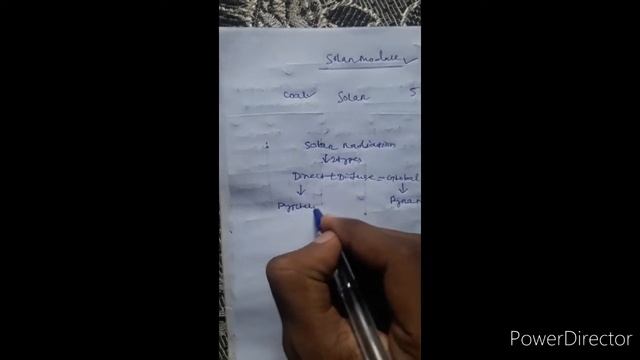 Solar module ✓
Coal Solar 5
Solar radiation
↓ 2types
Direct + Diffuse = Global
↓ ↓
Pyrhe Pyran
PowerDirector